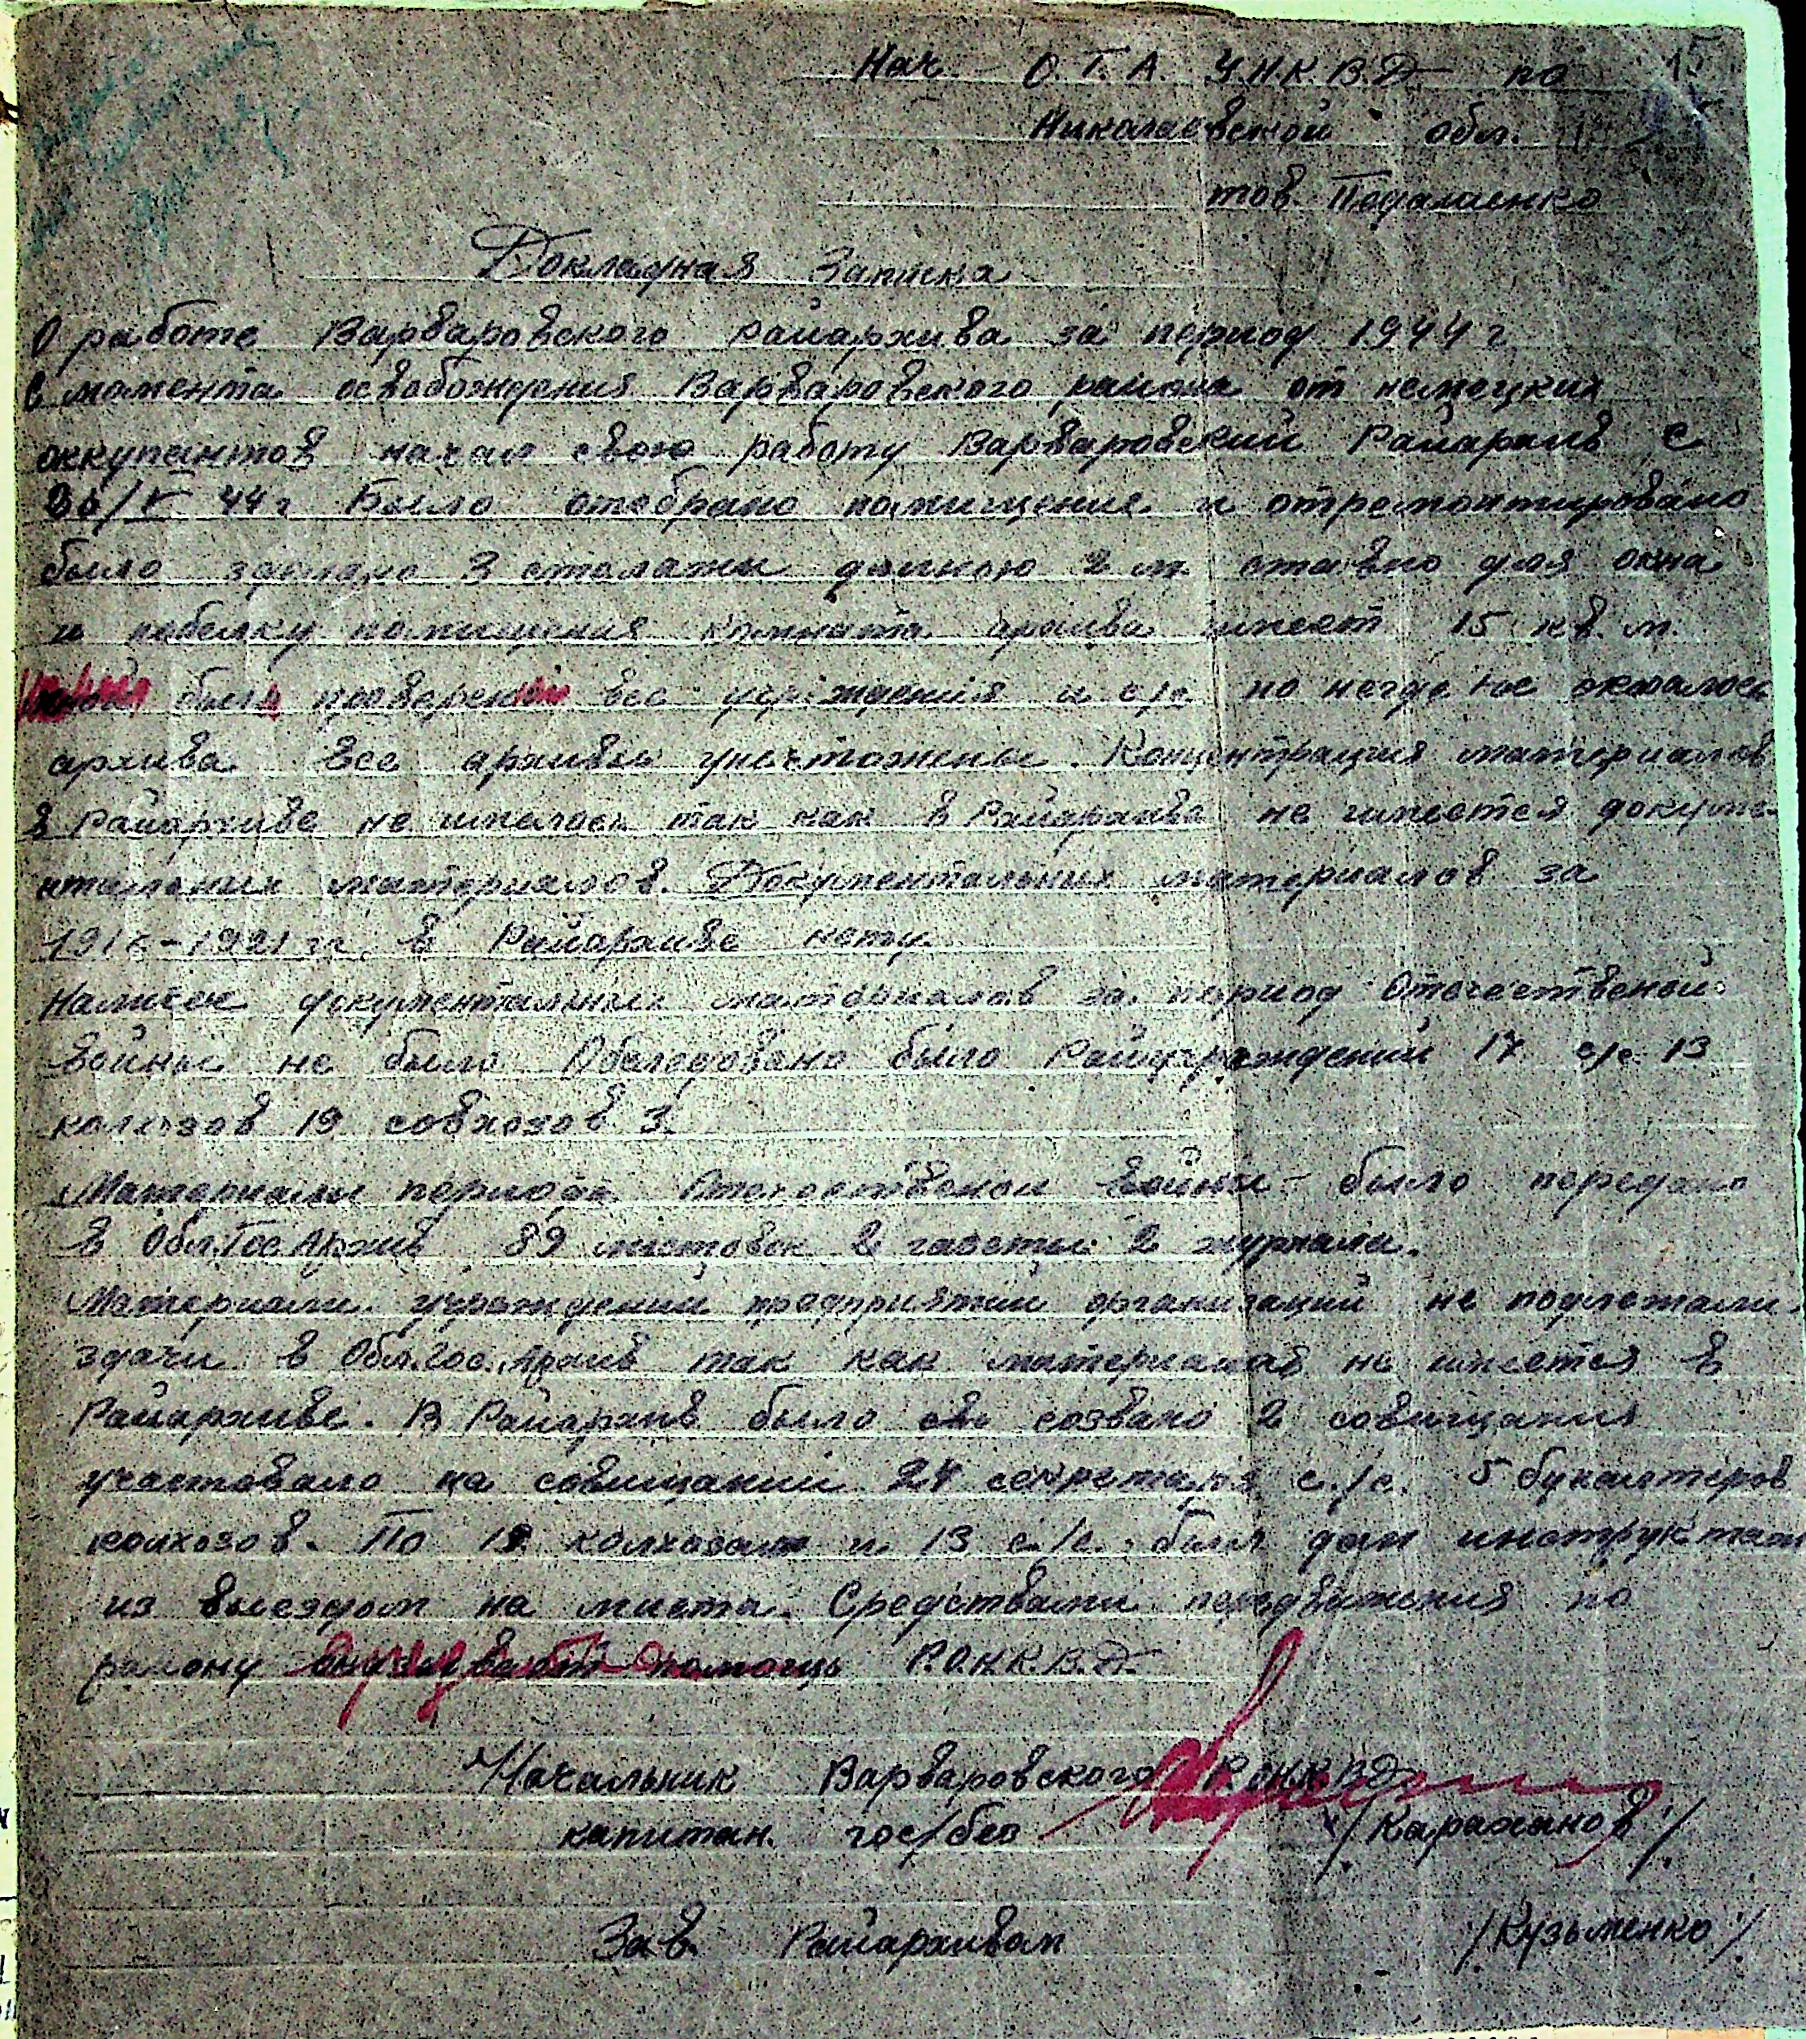 Нач. О.Т.А. У.Н.К.В.Д по
Николаевской обл.
тов.
Докладная Записка
О работе Варваровского Райархива за период 1944 г
С момента освобождения Варваровского района от немецких
оккупантов начал свою работу Варваровский Райархив с
44 г Было отобрано помищение и отремонтировано
было зделано 3 столажы длиною 2 м ставню для окна
и побелку помищения комната архива имеет 15 кв. м.
были проверены все учрждения и с/с но негде не оказалось
архива. Все архивы уничтожены. Концентрация материалов
в Райархиве не имелось так как в Райархиве не имеется докуме-
нтальних материалов. Документальних материалов за
в Райархиве нету.
документальних материалов за период Отечественой
войны не было Обследовано было Райучреждений 17 с/с 13
колхозов 19 совхозов 3.
Материали периода Отечественой войны было передано
в Обл.Гос.Архив 89 листовок 2 газеты 2 журнала.
Материали учреждений предприятий организаций не подлежали
здачи в Обл.Гос.Архив так как материалов не имеется в
Райархиве. В Райархив было созвано 2 совищания
участовало на совищании 24 секретаря с./с. 5 бухгалтеров
колхозов. По 19 колхозам и 13 с./с. был дан инструктаж
из выездом на миста. Средствами передвижения по
району помощь Р.О.Н.К.В.Д.
Начальник Варваровского Р.О.Н.К.В.Д
капитан гос/без /Караханов/
Зав. Райархивом /Кузьменко/